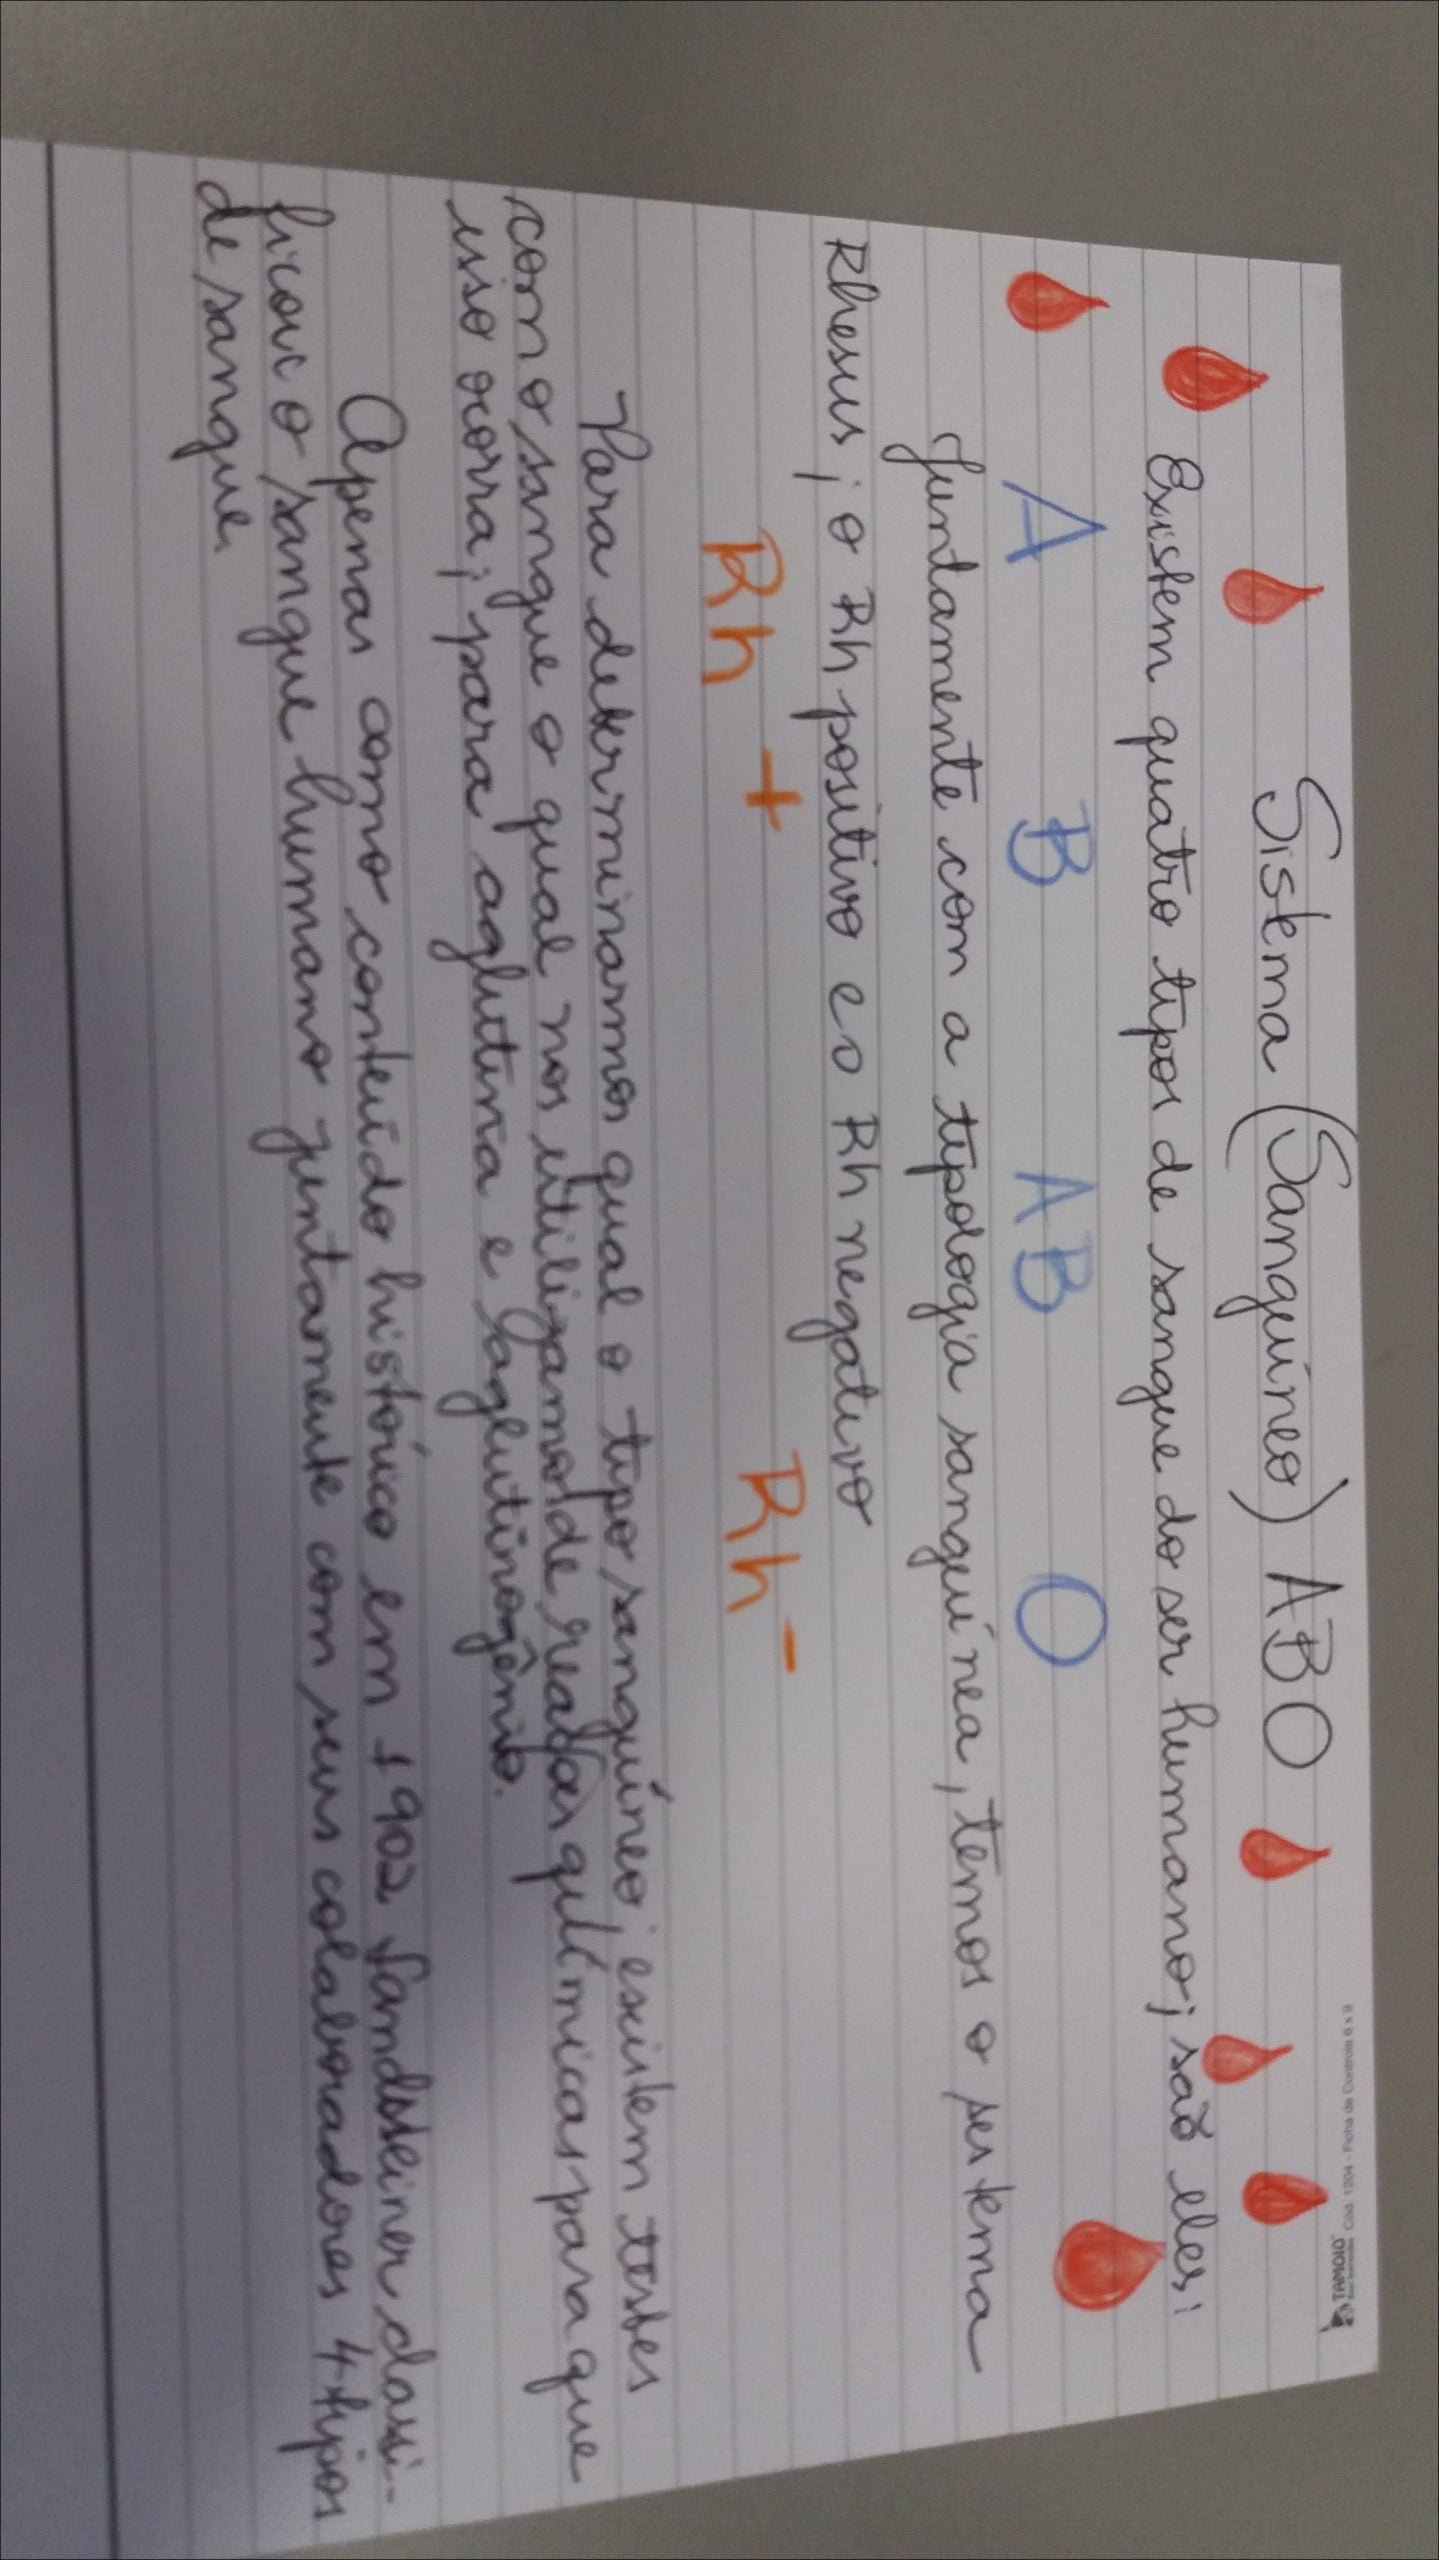 TAMOIO Cód. 1204 - Ficha de Controle 6 x 9
Sistema (Sanguíneo) ABO
Existem quatro tipos de sangue do ser humano; são eles:
A B AB O
Juntamente com a tipologia sanguínea, temos o sistema
Rhesus; o Rh positivo e o Rh negativo
Rh + Rh -
Para determinarmos qual o tipo sanguíneo, existem testes
com o sangue o qual nos utilizamos de reações químicas para que
isso ocorra; para aglutina e laglutinogênio.
Apenas como conteúdo histórico em 1902 Landsteiner classi-
ficou o sangue humano juntamente com seus colaboradores 4 tipos
de sangue.